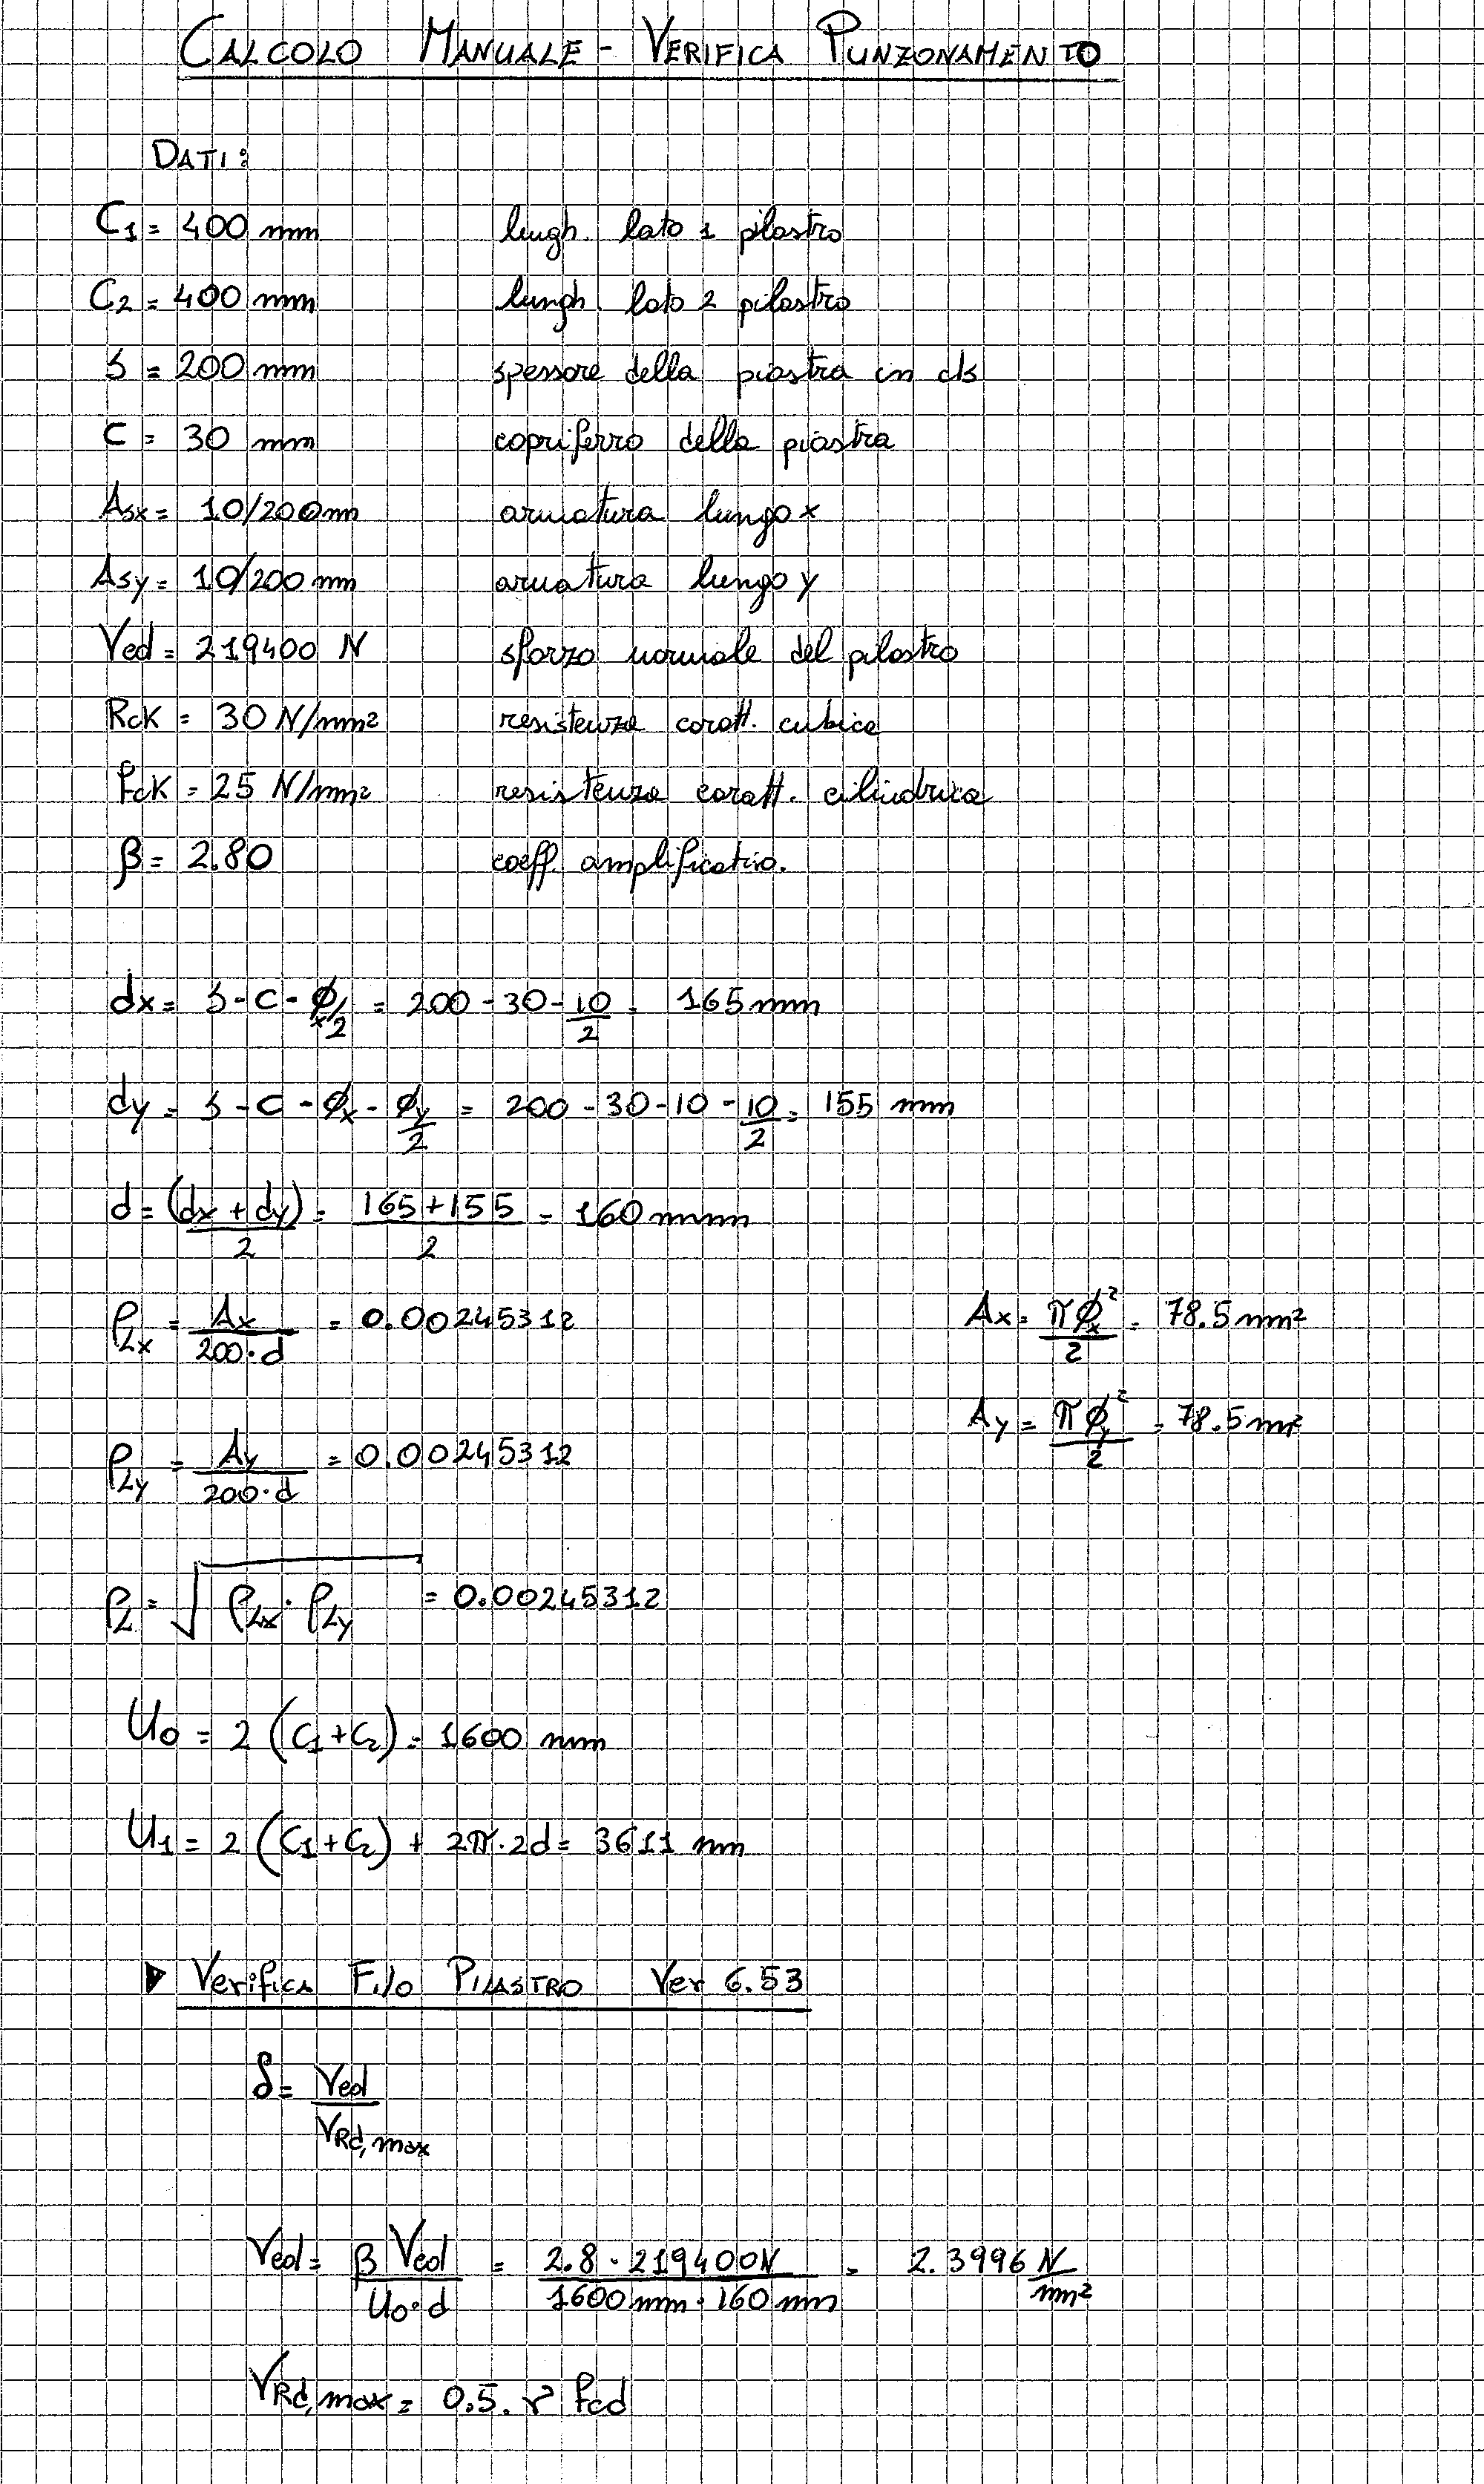 CALCOLO MANUALE - VERIFICA PUNZONAMENTO
DATI:
C1 = 400 mm lungh. lato 1 pilastro
C2 = 400 mm lungh. lato 2 pilastro
s = 200 mm spessore della piastra in cls
C = 30 mm copriferro della piastra
Asx = 10/200mm armatura lungo x
Asy = 10/200 mm armatura lungo y
Ved = 219400 N sforzo normale del pilastro
Rck = 30 N/mm² resistenza caratt. cubica
fck = 25 N/mm² resistenza caratt. cilindrica
β = 2.80 coeff. amplificativo.
dx = s - c - ϕx/2 = 200 - 30 - 10/2 = 165 mm
dy = s - c - ϕx - ϕy/2 = 200 - 30 - 10 - 10/2 = 155 mm
d = (dx + dy)/2 = (165 + 155)/2 = 160 mm
ρLx = Ax/(200·d) = 0.00245312 Ax = πϕx²/2 = 78.5 mm²
ρLy = Ay/(200·d) = 0.00245312 Ay = πϕy²/2 = 78.5 mm²
ρL = √(ρLx · ρLy) = 0.00245312
U0 = 2 (C1 + C2) = 1600 mm
U1 = 2 (C1 + C2) + 2π·2d = 3611 mm
▶ Verifica Filo PILASTRO Ver 6.53
δ = Ved/VRd,max
Ved = β Ved/(U0·d) = 2.8 · 219400N/(1600 mm · 160 mm) = 2.3996 N/mm²
VRd,max = 0.5 · ν fcd